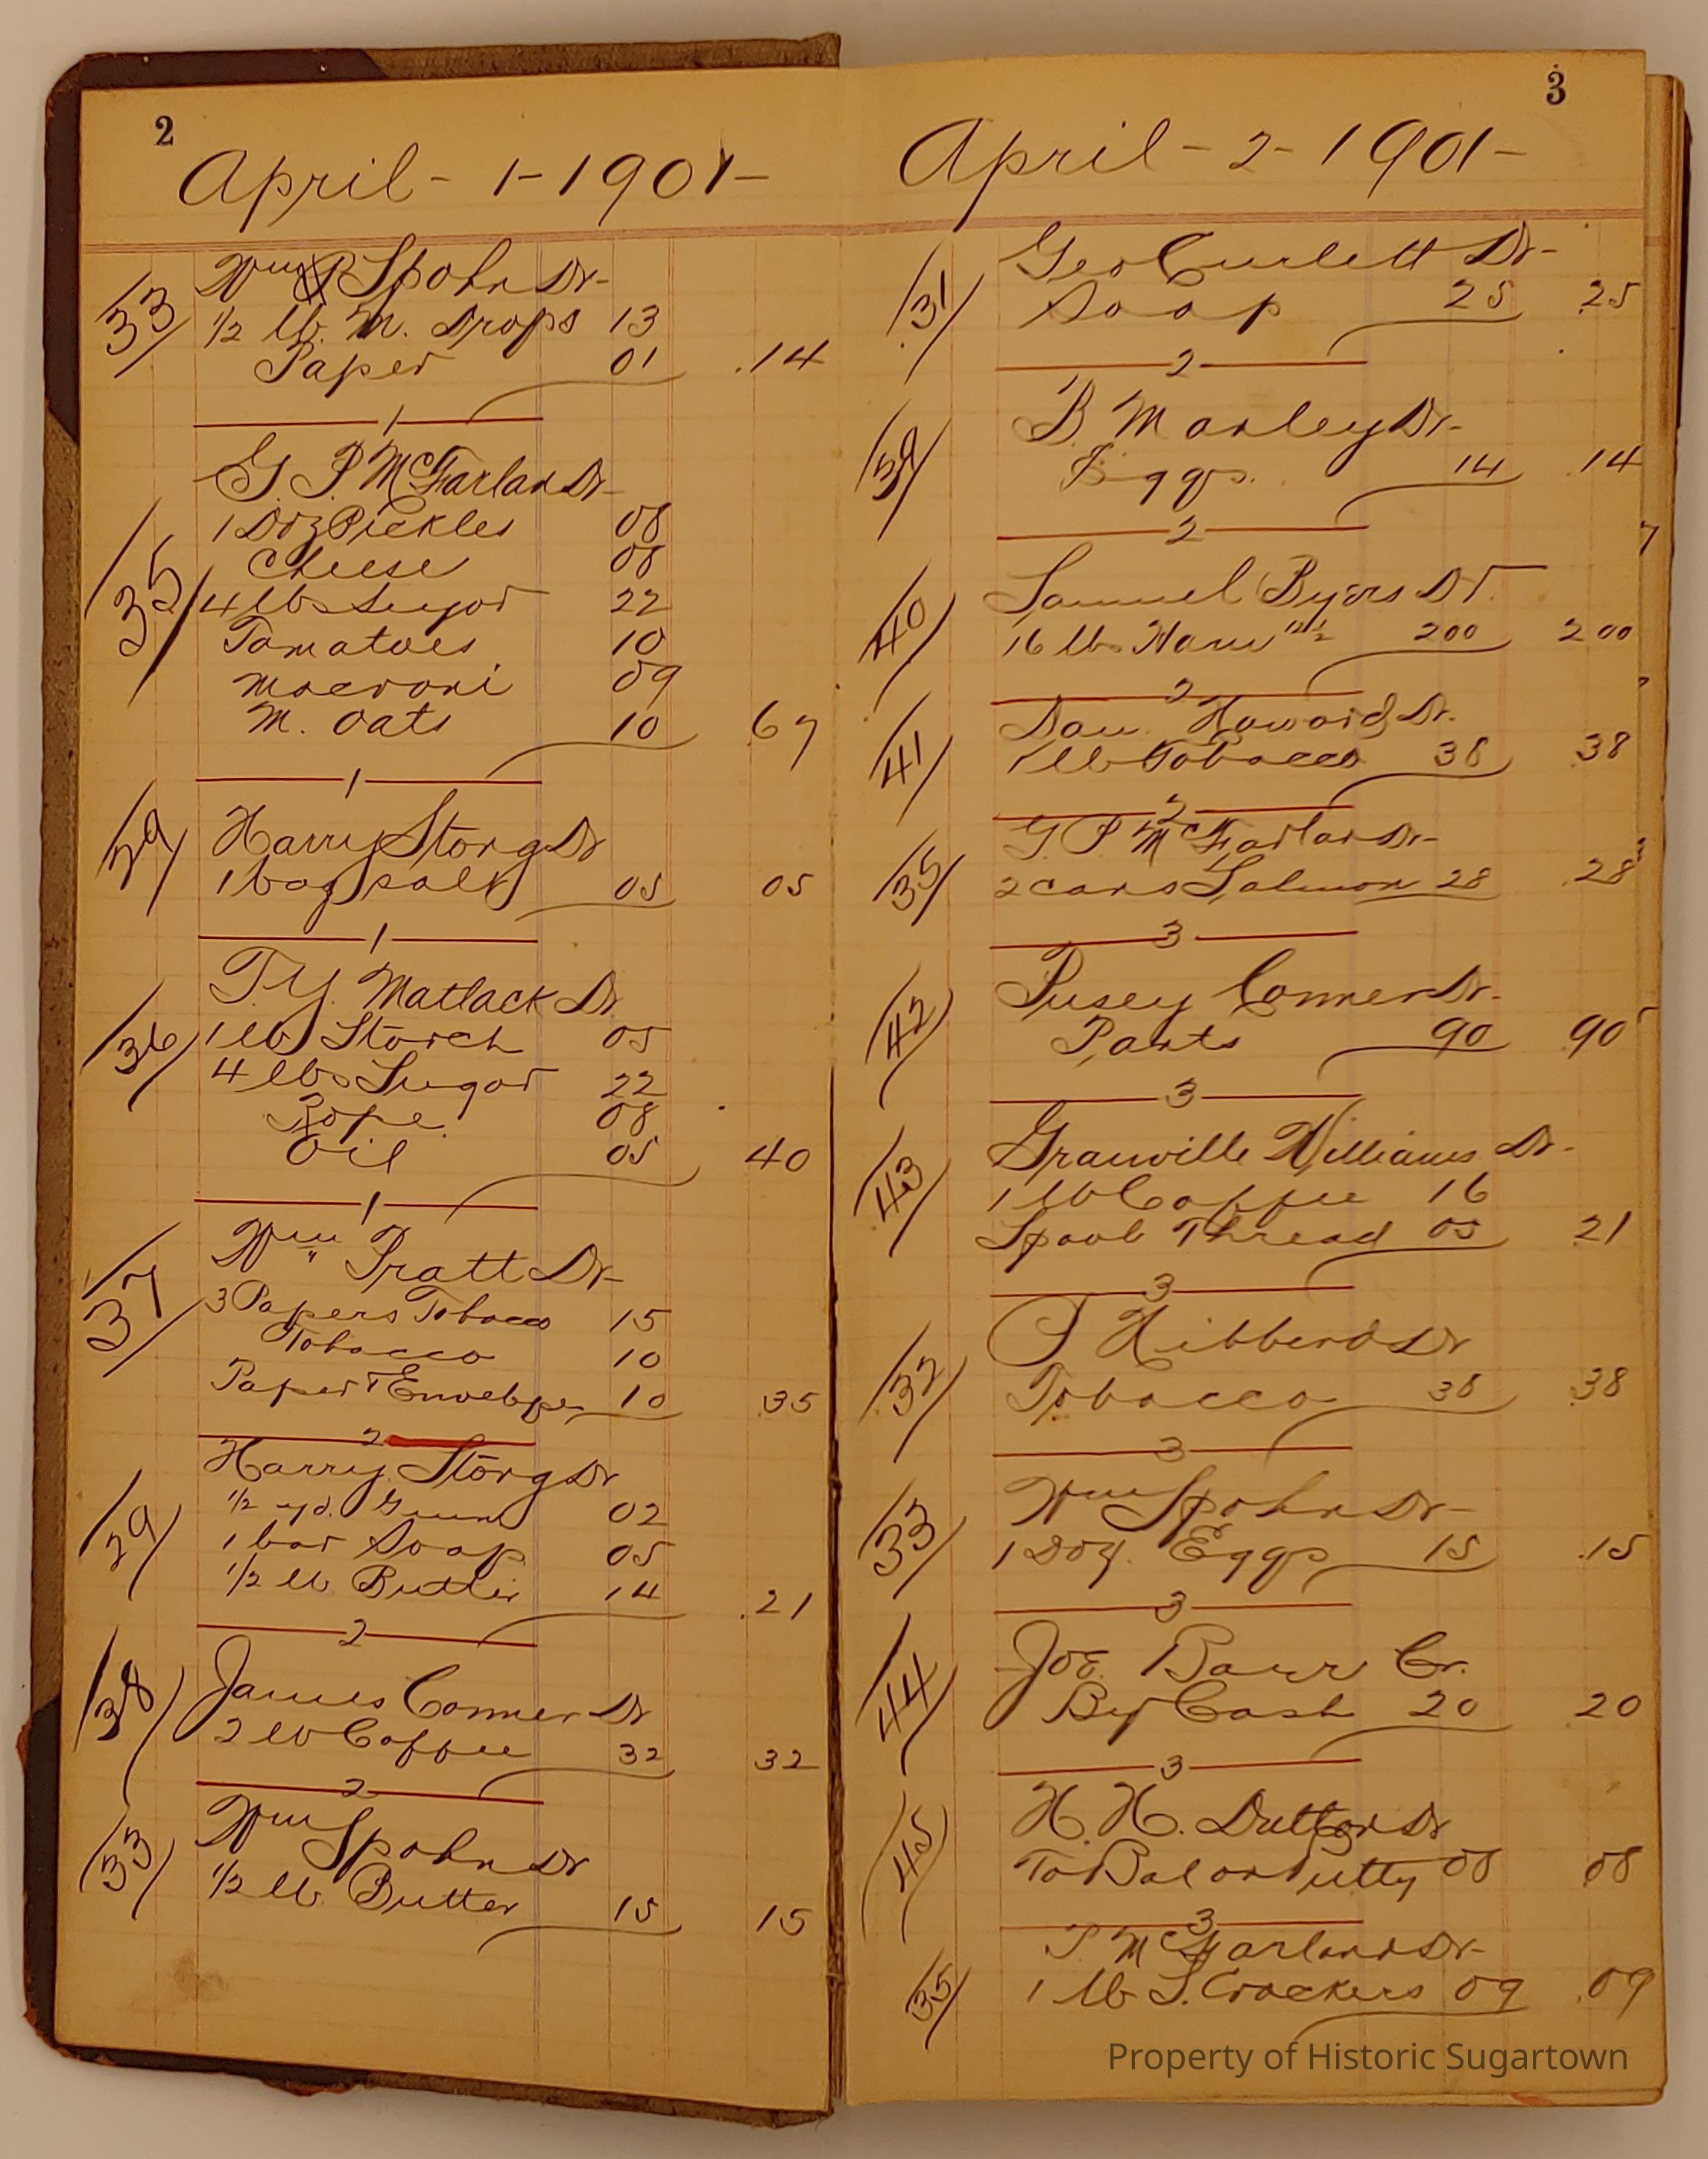 2
April - 1 - 1901 -
Wm Spohn Dr -
33
1/2 lb. M. Drops 13
Paper 01 .14
1
G. P. McFarlan Dr -
1 Doz Pickles 08
Cheese 08
35
4 lbs Sugar 22
Tomatoes 10
Macroni 09
M. Oats 10 .67
1
Harry Storg Dr
29
1 bag salt 05 05
1
T. Y. Matlack Dr
36
1 lb Starch 05
4 lbs Sugar 22
Rope 08
Oil 05 40
1
Wm " Pratt Dr -
37
3 Papers Tobacco 15
Tobacco 10
Paper + Envelope 10 .35
2
Harry Storg Dr
29
1/2 yd. 02
1 bar Soap 05
1/2 lb Butter 14 .21
2
38
James Conner Dr
2 lb Coffee 32 32
2
33
Wm Spohn Dr
1/2 lb Butter 15 15
3
April - 2 - 1901 -
Geo Curlett Dr -
31
Soap 25 .25
2
B. Marley Dr -
39
Eggs 14 .14
2
Samuel Byers Dr.
40
16 lbs Ham 12 1/2 200 200
2
Dan. Howard Dr.
41
1 lb Tobacco 38 .38
2
G. P. McFarlan Dr -
35
2 cans Salmon 28 .28
3
Pusey Conner Dr -
42
Pants 90 .90
3
Granville Williams Dr -
43
1 lb Coffee 16
Spool Thread 05 .21
3
P Hibberd Dr
32
Tobacco 38 .38
3
Wm Spohn Dr -
33
1 Doz. Eggs 15 .15
3
Joe. Barr Cr.
44
By Cash 20 20
3
H. H. Dutton Dr
45
To Bal on Putty 08 08
3
P McFarlan Dr -
35
1 lb S. Crackers 09 .09
Property of Historic Sugartown